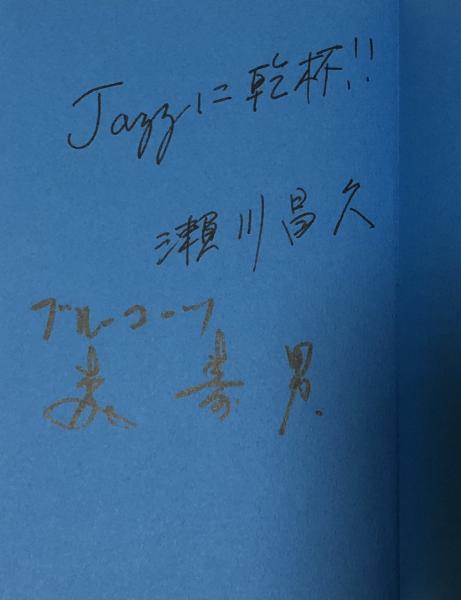 Jazzに乾杯!!
瀬川昌久
ブルーコーツ
森 寿男